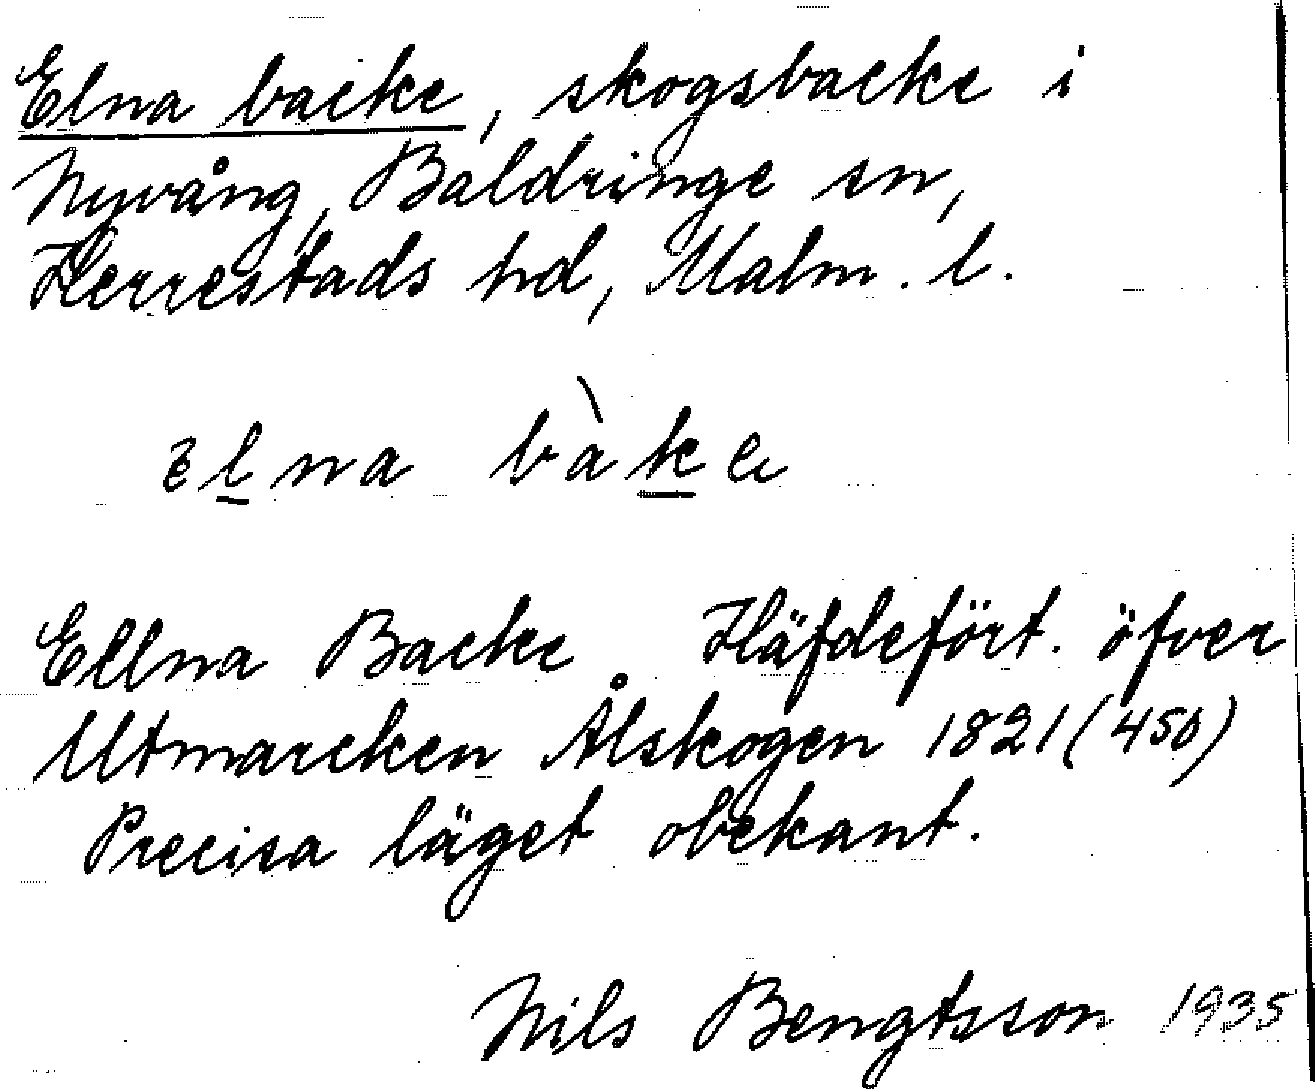 Elna backe, skogsbacke i
Nyvång, Baldringe sn,
Herrestads hd, Malm. l.
ɛlna bàke
Ellna Backe Häfdefört. öfver
Utmarcken Ålskogen 1821 (450)
Precisa läget obekant.
Nils Bengtsson 1935